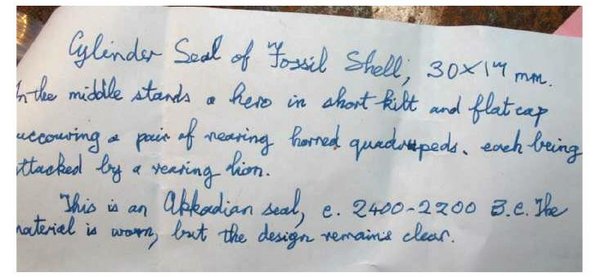 Cylinder Seal of Fossil Shell; 30×17 mm.
In the middle stands a hero in short kilt and flat cap
accouring a pair of rearing horned quadrupeds, each being
attacked by a rearing lion.
This is an Akkadian seal, c. 2400-2200 B.C. The
material is worn, but the design remains clear.